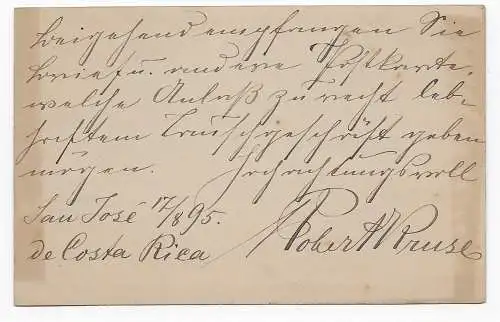 Beigehend empfangen Sie
Brief u. andere Postkarte,
welche Anlaß zu recht leb-
haftem Tauschgeschäft geben
mögen. Hochachtungsvoll
San José 17/8 95. Robert Kruse
de Costa Rica